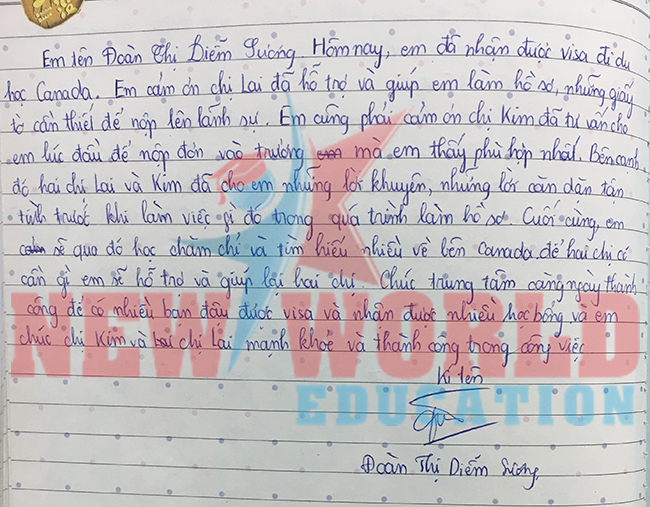 Em tên Đoàn Thị Diễm Sương Hôm nay, em đã nhận được visa đi du
học Canada. Em cảm ơn chị Lai đã hỗ trợ và giúp em làm hồ sơ, những giấy
tờ cần thiết để nộp lên lãnh sự. Em cũng phải cảm ơn chị Kim đã tư vấn cho
em lúc đầu để nộp đơn vào trường mà em thấy phù hợp nhất. Bên cạnh
đó hai chị Lai và Kim đã cho em những lời khuyên, những lời căn dặn tận
tình trước khi làm việc gì đó trong quá trình làm hồ sơ. Cuối cùng, em
sẽ qua đó học chăm chỉ và tìm hiểu nhiều về bên Canada. để hai chị có
cần gì em sẽ hỗ trợ và giúp lại hai chị. Chúc trung tâm càng ngày thành
công để có nhiều bạn đậu được visa và nhận được nhiều học bổng và em
chúc chị Kim và chị Lai mạnh khoẻ và thành công trong công việc
Kí tên
Đoàn Thị Diễm Sương
NEW WORLD
EDUCATION